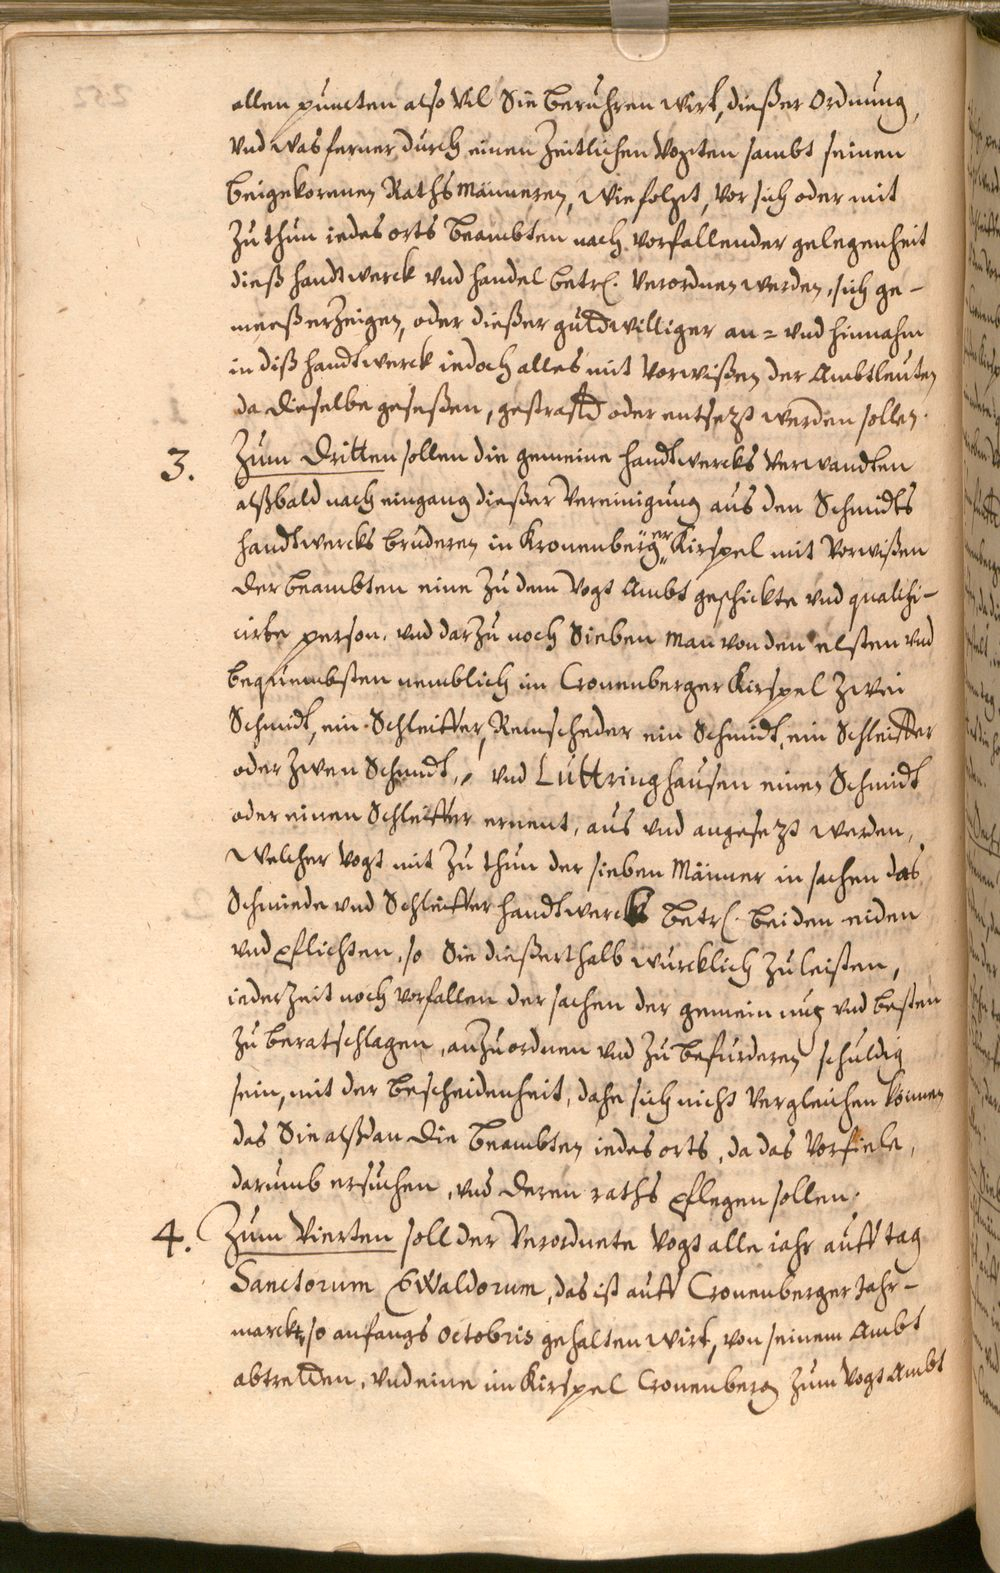 allen puncten also vil Sie beruhren wirt, dießer Ordnung,
vnd was ferner durch einen Zeitlichen Vogten sambt seinen
beigekorenen Raths Männeren, wie folgt, vor sich oder mit
Zuthun iedes orts beambten nach vorfallender gelegenheit
dieß handtwerck vnd handel betr. verordnen werden, sich ge-
meeß erZeigen, oder dießer gutdwilliger an- vnd hinnahm
in diß handtwerck iedoch alles mit vorwißen der Ambtleuten
da dieselbe geseßen, gestrafft oder entsetzt werden sollen.
3. Zum Dritten sollen die gemeine handtwercks verwandten
alßbald nach eingang dießer vereinigung aus den Schmidts
handtwercks bruderen in Kronenberger Kirspel mit vorwißen
der beambten eine Zu dem Vogt Ambt geschickte vnd qualifi-
cirte person, vnd darZu noch Sieben man von den elsten vnd
bequembsten nemblich im Cronenberger Kirspel Zwei
Schmidt, ein Schleiffer, Remscheder ein Schmidt, ein Schleiffer
oder Zwen Schmidt, vnd Luttringhausen einen Schmidt
oder einen Schleiffer ernent, aus vnd angesetzt werden,
Welcher Vogt mit Zuthun der sieben Männer in sachen das
Schmiede vnd Schleiffer handtwercks betr. bei den eiden
vnd pflichten, so Sie dießerthalb wurcklich Zu leisten,
iederZeit noch vorfallen der sachen der gemein nutz vnd besten
Zu beratschlagen, anZuordnen vnd Zu befurderen schuldig
sein, mit der bescheidenheit, dahe sich nicht vergleichen können
das Sie alßdan die beambten iedes orts, da das vorfiele,
darumb ersuchen, vnd deren raths pflegen sollen.
4. Zum Vierten soll der verordnete Vogt alle iahr auff tag
Sanctorum Ewaldorum, das ist auff Cronenberger Jahr-
marckt, so anfangs Octobris gehalten wirt, von seinem Ambt
abtretden, vnd eine im Kirspel Cronenberg Zum Vogt Ambt